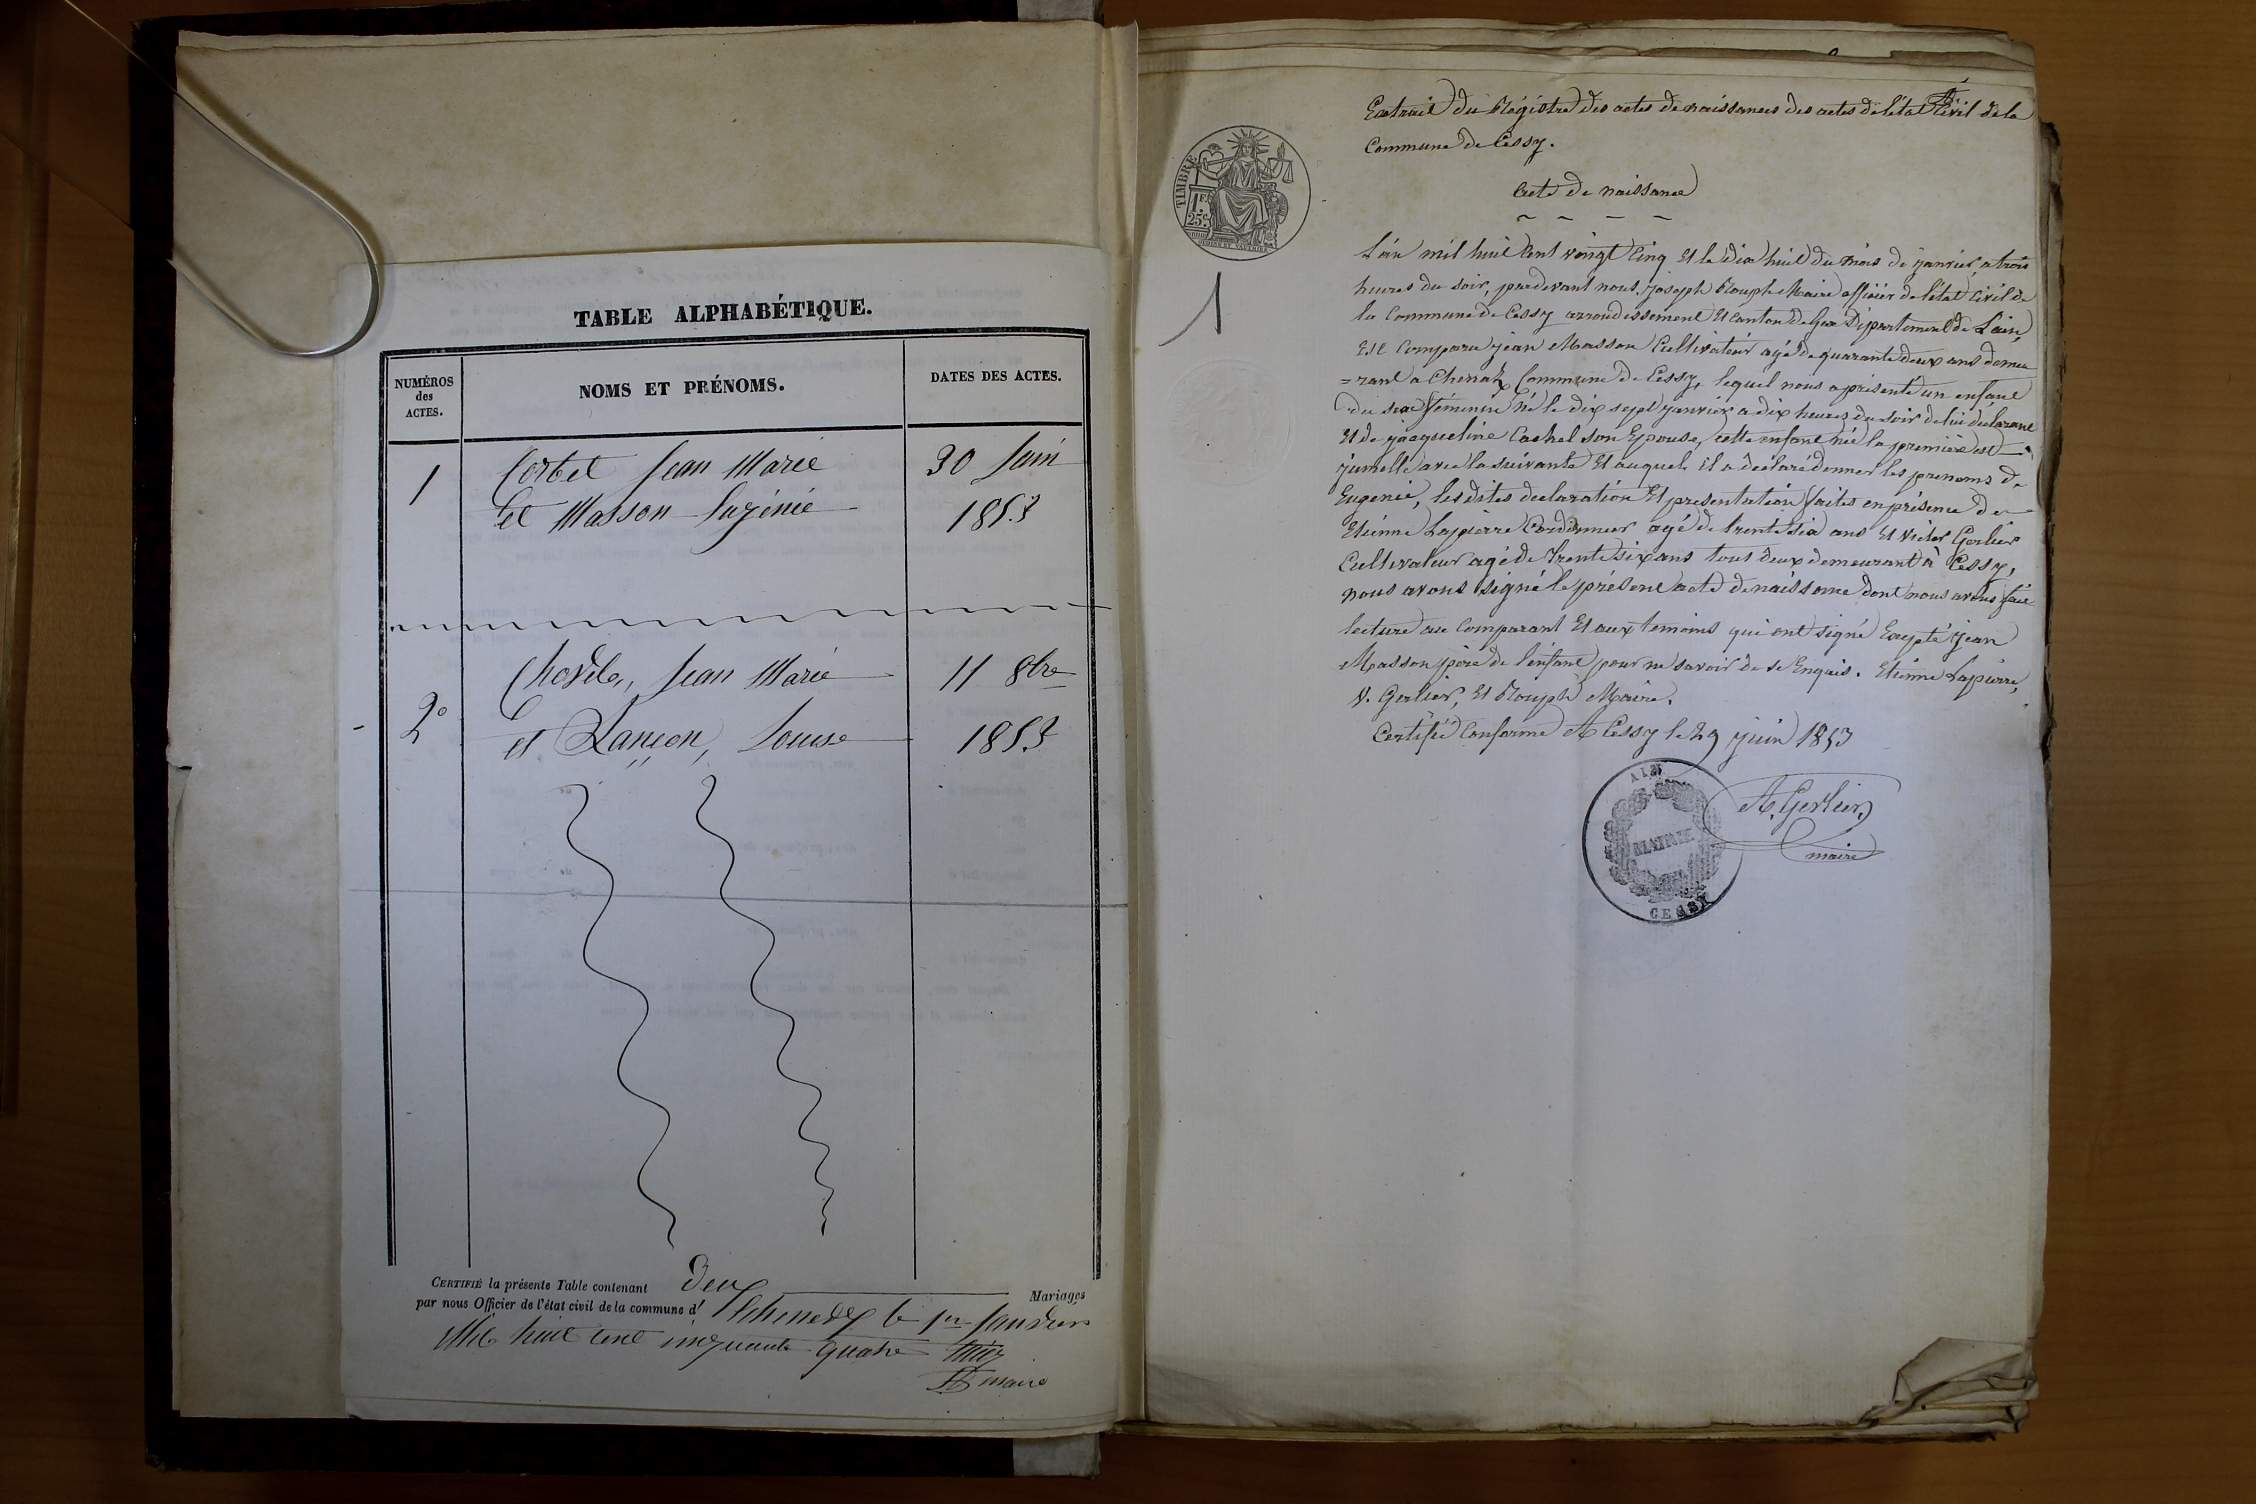 TABLE ALPHABÉTIQUE.
NUMÉROS
des
ACTES.
NOMS ET PRÉNOMS.
DATES DES ACTES.
1
Corbet Jean Marie
30 Juin
et Masson Eugénie
1853
Jean Marie
11 8bre
2º
et Lançon, Louise
1853
CERTIFIÉ la présente Table contenant deux Mariages
par nous Officier de l'état civil de la commune d' le 1er Janvier
Mil huit cent cinquante quatre
maire
Extrait du Régistre des actes de naissances des actes de l'état Civil de la
Commune de Cessy.
TIMBRE
1 F.
25 c.
acte de naissance
1
L'an mil huit cent vingt cinq et le dix huit du mois de janvier, a trois
heures du soir, pardevant nous Joseph Rouph Maire officier de l'état Civil de
la Commune de Cessy arrondissement et canton de Gex Département de L'ain,
Est Comparu jean Masson Cultivateur agé de quarante deux ans demeu
=rant a Chenaz Commune de Cessy, lequel nous a présenté un enfant
du sexe féminin né le dix sept janvier a dix heures du soir de lui déclarant
et de jacqueline son Epouse, cette enfant née la première est
jumelle avec la suivante et auquel il a déclaré donner les prenoms de
Eugenie, les dites declaration et presentation faites en présence de
Etienne Lapierre Cordonnier agé de trente six ans et Victor Gerlier
Cultivateur agé de trente six ans tous deux demeurant à Cessy,
nous avons signé le présent acte de naissance dont nous avons fait
lecture au Comparant et aux temoins qui ont signé Excepté jean
Masson père de l'enfant pour ne savoir de ce Enquis. Etienne Lapierre,
V. Gerlier, et Rouph Maire.
Certifié Conforme A Cessy le 29 juin 1853
A. Gerlier
maire
AIN
MAIRIE
CESSY